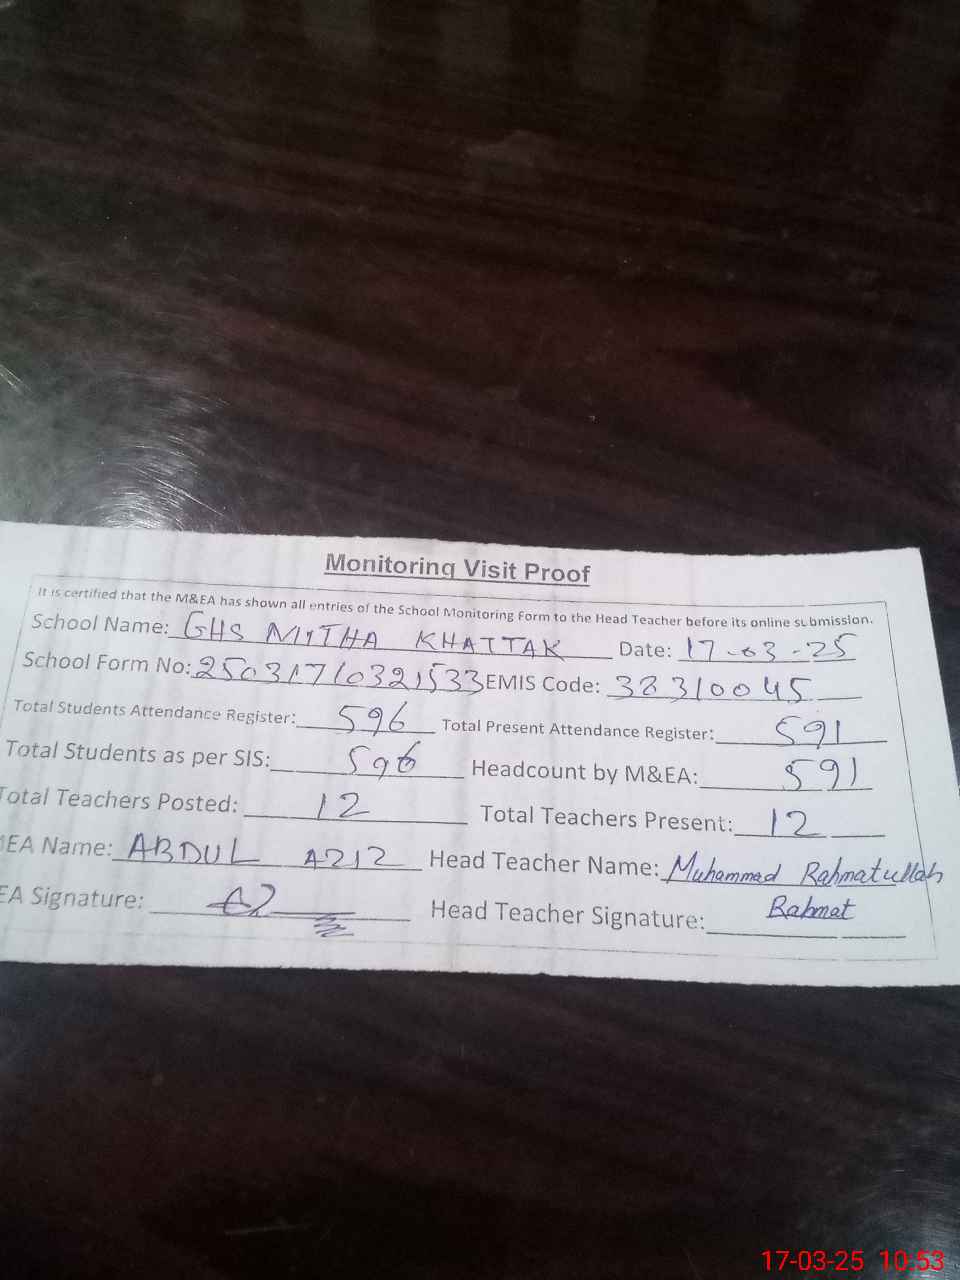 Monitoring Visit Proof
It is certified that the M&EA has shown all entries of the School Monitoring Form to the Head Teacher before its online submission.
School Name: GHS MITHA KHATTAK Date: 17-03-25
School Form No: 25031710321533 EMIS Code: 38310045
Total Students Attendance Register: 596 Total Present Attendance Register: 591
Total Students as per SIS: 596 Headcount by M&EA: 591
Total Teachers Posted: 12 Total Teachers Present: 12
EA Name: ABDUL AZIZ Head Teacher Name: Muhammad Rahmatullah
EA Signature: Head Teacher Signature: Rahmat
17-03-25 10:53